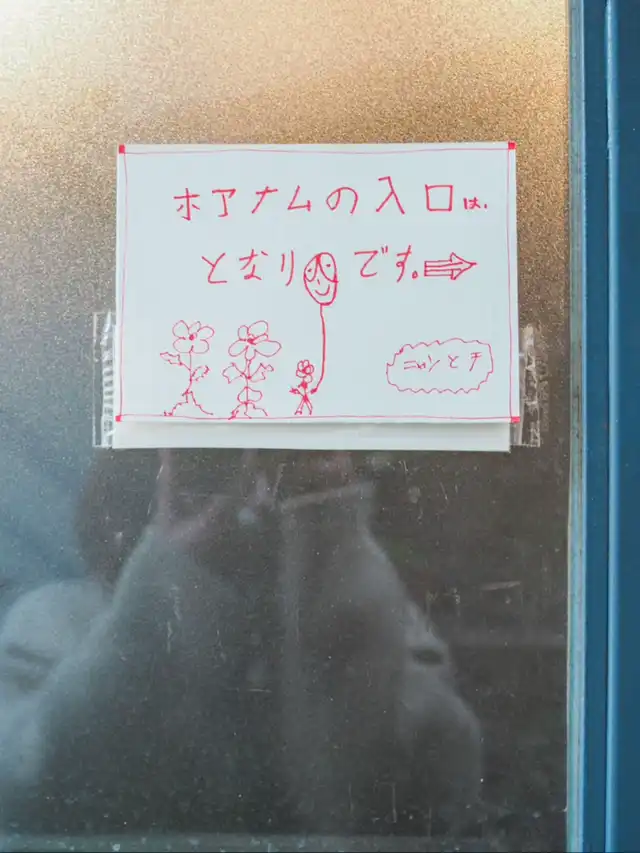 ホアナムの入口は、
となりです。⇒
ニャンとチ